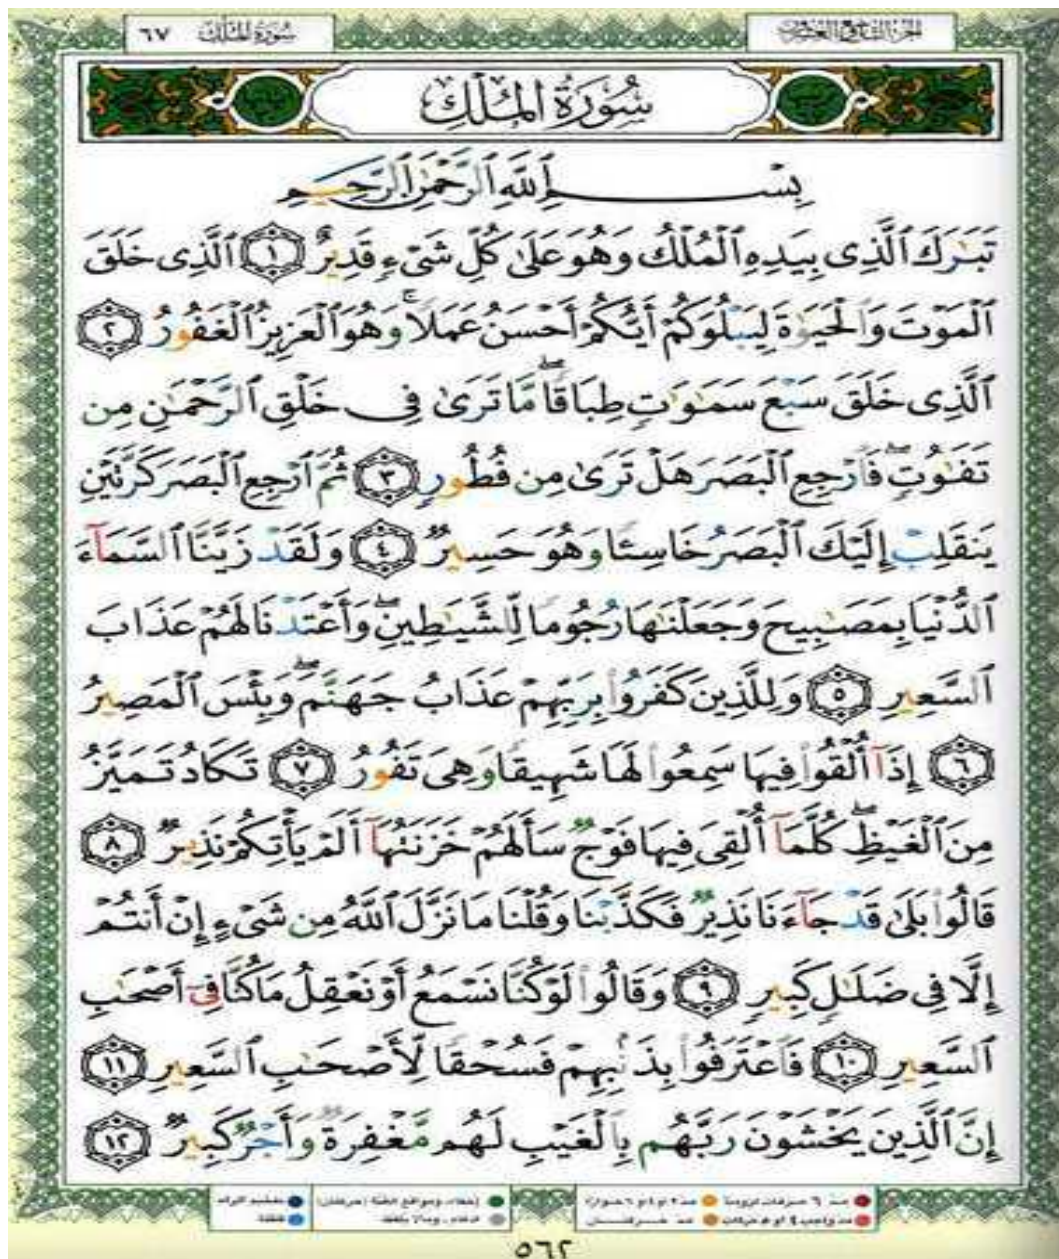 سورة الملك ٦٧
الجزء التاسع والعشرون
سُورَةُ المُلْكِ
بِسْمِ ٱللَّهِ ٱلرَّحْمَٰنِ ٱلرَّحِيمِ
تَبَٰرَكَ ٱلَّذِى بِيَدِهِ ٱلْمُلْكُ وَهُوَ عَلَىٰ كُلِّ شَىْءٍ قَدِيرٌ ١ ٱلَّذِى خَلَقَ
ٱلْمَوْتَ وَٱلْحَيَوٰةَ لِيَبْلُوَكُمْ أَيُّكُمْ أَحْسَنُ عَمَلًا ۚ وَهُوَ ٱلْعَزِيزُ ٱلْغَفُورُ ٢
ٱلَّذِى خَلَقَ سَبْعَ سَمَٰوَٰتٍ طِبَاقًا ۖ مَّا تَرَىٰ فِى خَلْقِ ٱلرَّحْمَٰنِ مِن
تَفَٰوُتٍ ۖ فَٱرْجِعِ ٱلْبَصَرَ هَلْ تَرَىٰ مِن فُطُورٍ ٣ ثُمَّ ٱرْجِعِ ٱلْبَصَرَ كَرَّتَيْنِ
يَنقَلِبْ إِلَيْكَ ٱلْبَصَرُ خَاسِئًا وَهُوَ حَسِيرٌ ٤ وَلَقَدْ زَيَّنَّا ٱلسَّمَآءَ
ٱلدُّنْيَا بِمَصَٰبِيحَ وَجَعَلْنَٰهَا رُجُومًا لِّلشَّيَٰطِينِ ۖ وَأَعْتَدْنَا لَهُمْ عَذَابَ
ٱلسَّعِيرِ ٥ وَلِلَّذِينَ كَفَرُوا۟ بِرَبِّهِمْ عَذَابُ جَهَنَّمَ ۖ وَبِئْسَ ٱلْمَصِيرُ
٦ إِذَآ أُلْقُوا۟ فِيهَا سَمِعُوا۟ لَهَا شَهِيقًا وَهِىَ تَفُورُ ٧ تَكَادُ تَمَيَّزُ
مِنَ ٱلْغَيْظِ ۖ كُلَّمَآ أُلْقِىَ فِيهَا فَوْجٌ سَأَلَهُمْ خَزَنَتُهَآ أَلَمْ يَأْتِكُمْ نَذِيرٌ ٨
قَالُوا۟ بَلَىٰ قَدْ جَآءَنَا نَذِيرٌ فَكَذَّبْنَا وَقُلْنَا مَا نَزَّلَ ٱللَّهُ مِن شَىْءٍ إِنْ أَنتُمْ
إِلَّا فِى ضَلَٰلٍ كَبِيرٍ ٩ وَقَالُوا۟ لَوْ كُنَّا نَسْمَعُ أَوْ نَعْقِلُ مَا كُنَّا فِىٓ أَصْحَٰبِ
ٱلسَّعِيرِ ١٠ فَٱعْتَرَفُوا۟ بِذَنۢبِهِمْ فَسُحْقًا لِّأَصْحَٰبِ ٱلسَّعِيرِ ١١
إِنَّ ٱلَّذِينَ يَخْشَوْنَ رَبَّهُم بِٱلْغَيْبِ لَهُم مَّغْفِرَةٌ وَأَجْرٌ كَبِيرٌ ١٢
٥٦٢